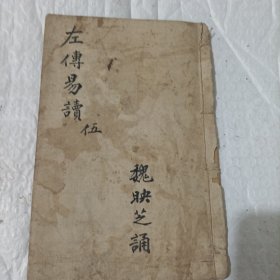 左傳易讀
伍
魏映芝誦